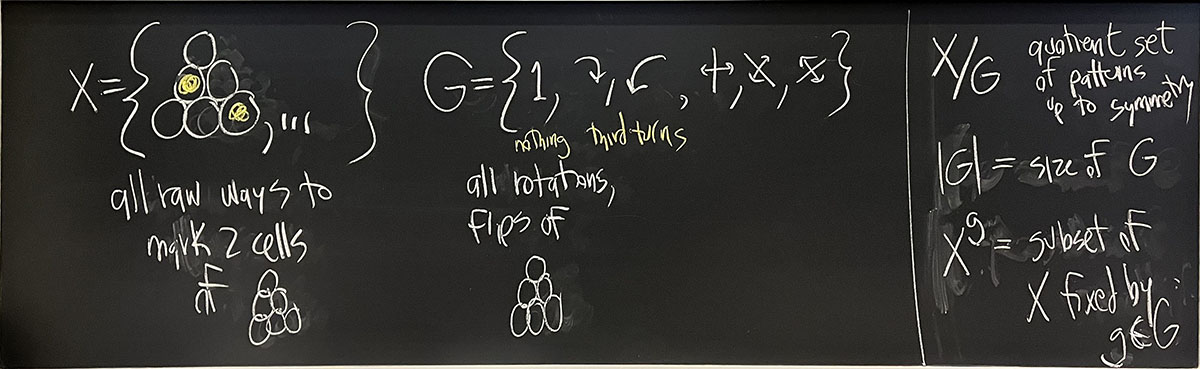 X = { , ... }
all raw ways to
mark 2 cells
of
G = { 1, ↷, ↶, ↔, ⤢, ⤡ }
nothing third turns
all rotations,
flips of
X/G quotient set
of patterns
up to symmetry
|G| = size of G
X^g = subset of
X fixed by
g∈G